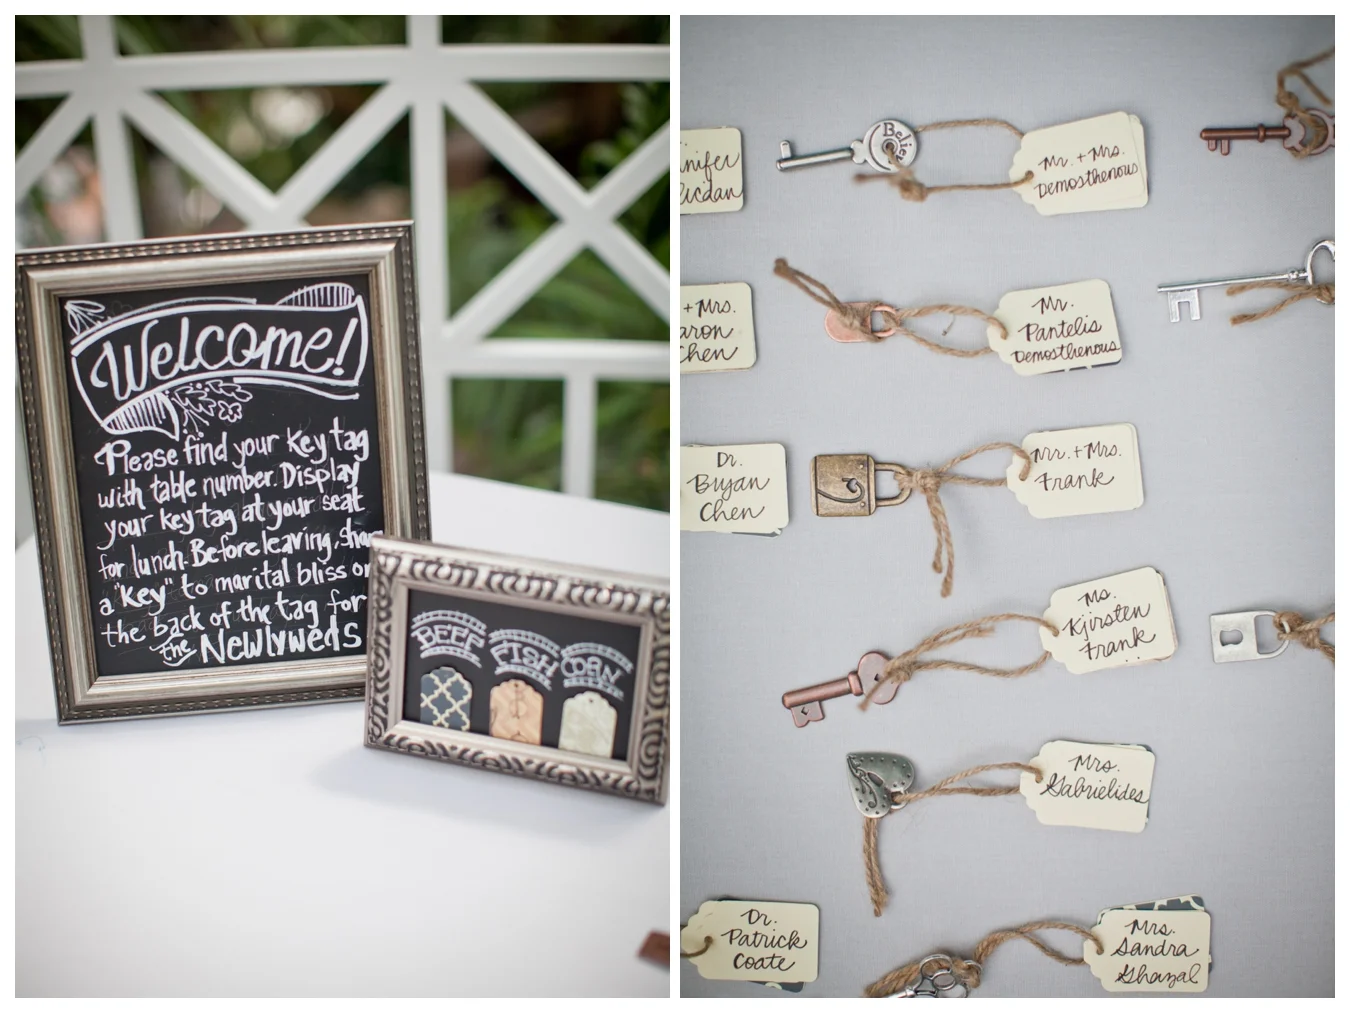 Welcome!
Please find your key tag
with table number. Display
your key tag at your seat
for lunch. Before leaving, shar
a "key" to marital bliss on
the back of the tag for
the Newlyweds
BEEF
FISH
CORN
nifer
licdan
Believ
Mr. + Mrs.
Demosthenous
+ Mrs.
aron
Chen
Mr.
Pantelis
Demosthenous
Dr.
Bryan
Chen
Mr. + Mrs.
Frank
Ms.
Kjirsten
Frank
Mrs.
Gabrielides
Dr.
Patrick
Coate
Mrs.
Sandra
Ghazal